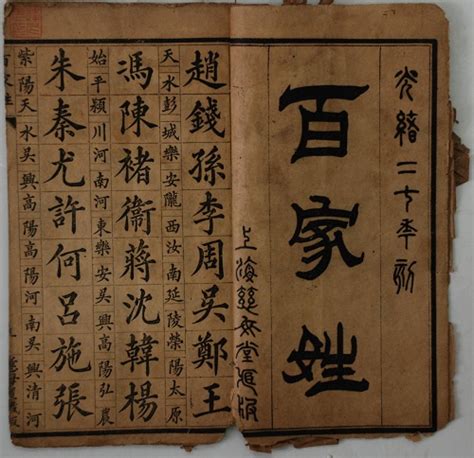 光緒二七年刻
百家姓
上海慈母堂
趙錢孫李周吳鄭王
天水彭城樂安隴西汝南延陵滎陽太原
馮陳褚衞蔣沈韓楊
始平潁川河南河東樂安吳興高陽弘農
朱秦尤許何呂施張
紫陽天水吳興高陽高陽河南吳興清河
百家姓